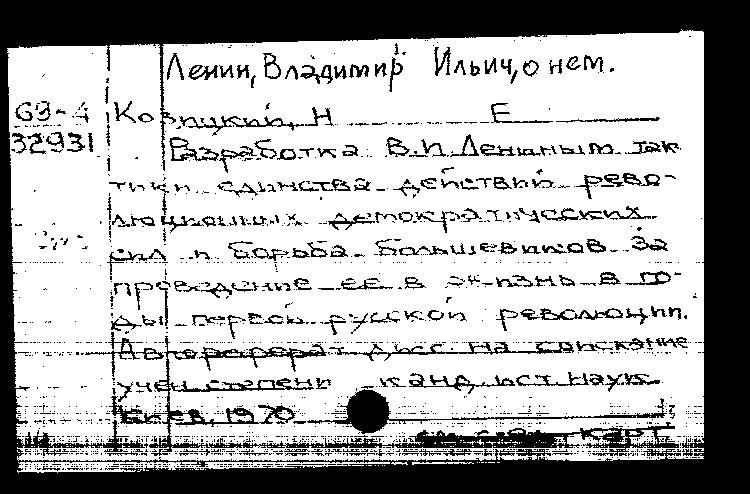 Ленин, Владимир Ильич, о нем.
69-4 Козицкий, Н Е
32931 Разработка В.И. Лениным так
тики единства действий рево-
люционных демократических
сил и борьба большевиков за
проведение ее в жизнь в го-
ды первой русской революции.
Автореферат дисс. на соискание
учен степени канд. ист. наук
Киев, 1970
карт